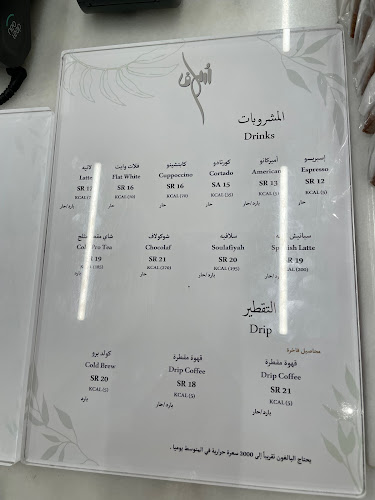 المشروبات
Drinks
إسبريسو
Espresso
SR 12
KCAL (5)
حار
أمريكانو
American
SR 13
KCAL (5)
بارد/حار
كورتادو
Cortado
SA 15
KCAL (35)
حار
كابتشينو
Cappuccino
SR 16
حار
فلات وايت
Flat White
SR 16
حار
لاتيه
Latte
بارد/حار
سبانيش
Spanish Latte
SR 19
KCAL (200)
بارد/حار
سلافيه
Soulafiyah
SR 20
KCAL (195)
بارد/حار
شوكولاف
Chocolaf
SR 21
KCAL (270)
بارد/حار
شاي مثلج
Tea
SR 19
بارد
التقطير
Drip
محاصيل فاخرة
قهوة مقطرة
Drip Coffee
SR 21
KCAL (5)
بارد/حار
قهوة مقطرة
Drip Coffee
SR 18
KCAL (5)
بارد/حار
كولد برو
Cold Brew
SR 20
KCAL (5)
بارد
يحتاج البالغون تقريباً إلى 2000 سعرة حرارية في المتوسط يوميا .